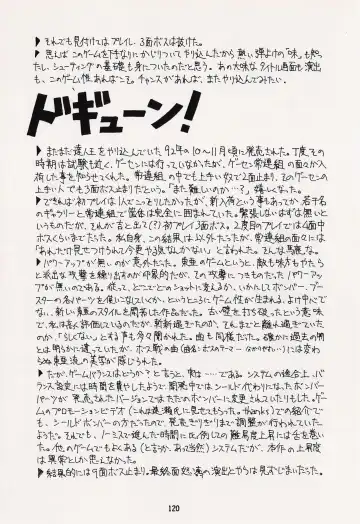 ▶それでも見付けてはプレイし、3面ボスは抜けた。
▶思えばこのゲームを下手なりにかじりついてやり込んだから熱い弾よけの「味」も知っ
たし、シューティングの基礎も身についたのだと思う。あの大味なタイトル画面も演出
も、このゲーム性あればこそ。チャンスがあれば、またやり込んでみたい。
ドギューン!
▶またまた達人王をやり込んでいた92年の10〜11月頃に発売された。丁度その
時期は試験も近く、ゲーセンには行っていなかったが、ゲーセン常連組の面々が入
荷した事を知らせてくれた。常連組の中でも上手い奴で2面止まり、そのゲーセンの
上手い人でも3面ボス止まりだという。「また難しいのか…?」嬉しくなった。
▶できれば初プレイは1人でこっそりしたかったが、新入荷という事もあってか若干名
のギャラリーと常連組で筐体は完全に囲まれていた。緊張しないはずは無いと
いうものだが、それが吉と出(?)初プレイ3面ボス。2度目のプレイでは4面中
ボスくらいまでだった。私自身、この結果は以外だったが、常連組の面々には
「あれだけ見せつけられて今更やる気なんかない」と言われた。そんな馬鹿な。
▶パワーアップが無いのが意外だった。東亜のゲームというと、敵も味方もやたら
と派出な攻撃を繰り出すのが印象的だが、その攻撃につきものだった「パワーアップ
が無いのである。従って、どこでどのショットに変えるか、いかにしてボンバー、ブー
スターの各パーツを使いこなしていくか、というところにゲーム性が生まれる。より中心でな
い、新しい東亜のスタイルを開発した作品だった。古い壁を打ち破ったという意味
で、私は高く評価しているのだが、斬新過ぎたのか、それまでと離れ過ぎていた
のか、「らしくない」とする声も多々聞かれた。曲も同様だった。確かに過去の曲
とは明らかに違っていたが、ボス戦の曲(曲名:ボスのテーマ…なかりやすい)には変わら
ぬ東亜流の美学が感じられた。
▶だが、ゲームバランスはどうか?と言うと、別…である。システムの都合上、バ
ランス設定には時間を費やしたようで、開発中ではシールド代わりになったボンバー
パーツが発売されたバージョンではまたただのボンバーに変更されていたりもした。ゲー
ムのプロモーションビデオ(これは某瀬氏に見せてもらった。thanks)での紹介で
も、シールドボンバーの方だったので、発売ぎりぎりまで調整が行われていた
ようだ。それでも、ノーミスで進んだ時間に比例しての難易度上昇には舌を巻い
た。他のゲームでもよくある(どころか、ありきたり)システムだが、本作の上昇度
は異常としか思えなかった。
▶結果的には9面ボス止まり。最終面怒濤の演出とやらは見ずじまいだった。
120